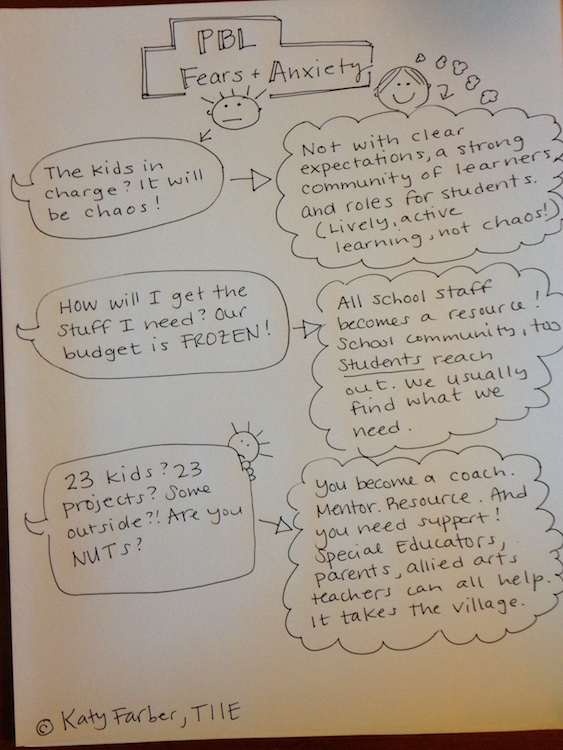 PBL
Fears + Anxiety
The kids in
charge? It will
be chaos!
Not with clear
expectations, a strong
community of learners,
and roles for students.
(Lively, active
learning, not chaos!)
How will I get the
stuff I need? Our
budget is FROZEN!
All school staff
becomes a resource!
School community, too
Students reach
out. We usually
find what we
need.
23 kids? 23
projects? Some
outside?! Are you
NUTS?
You become a coach.
Mentor. Resource. And
you need support!
Special Educators,
parents, allied arts
teachers can all help.
It takes the village.
© Katy Farber, TIIE